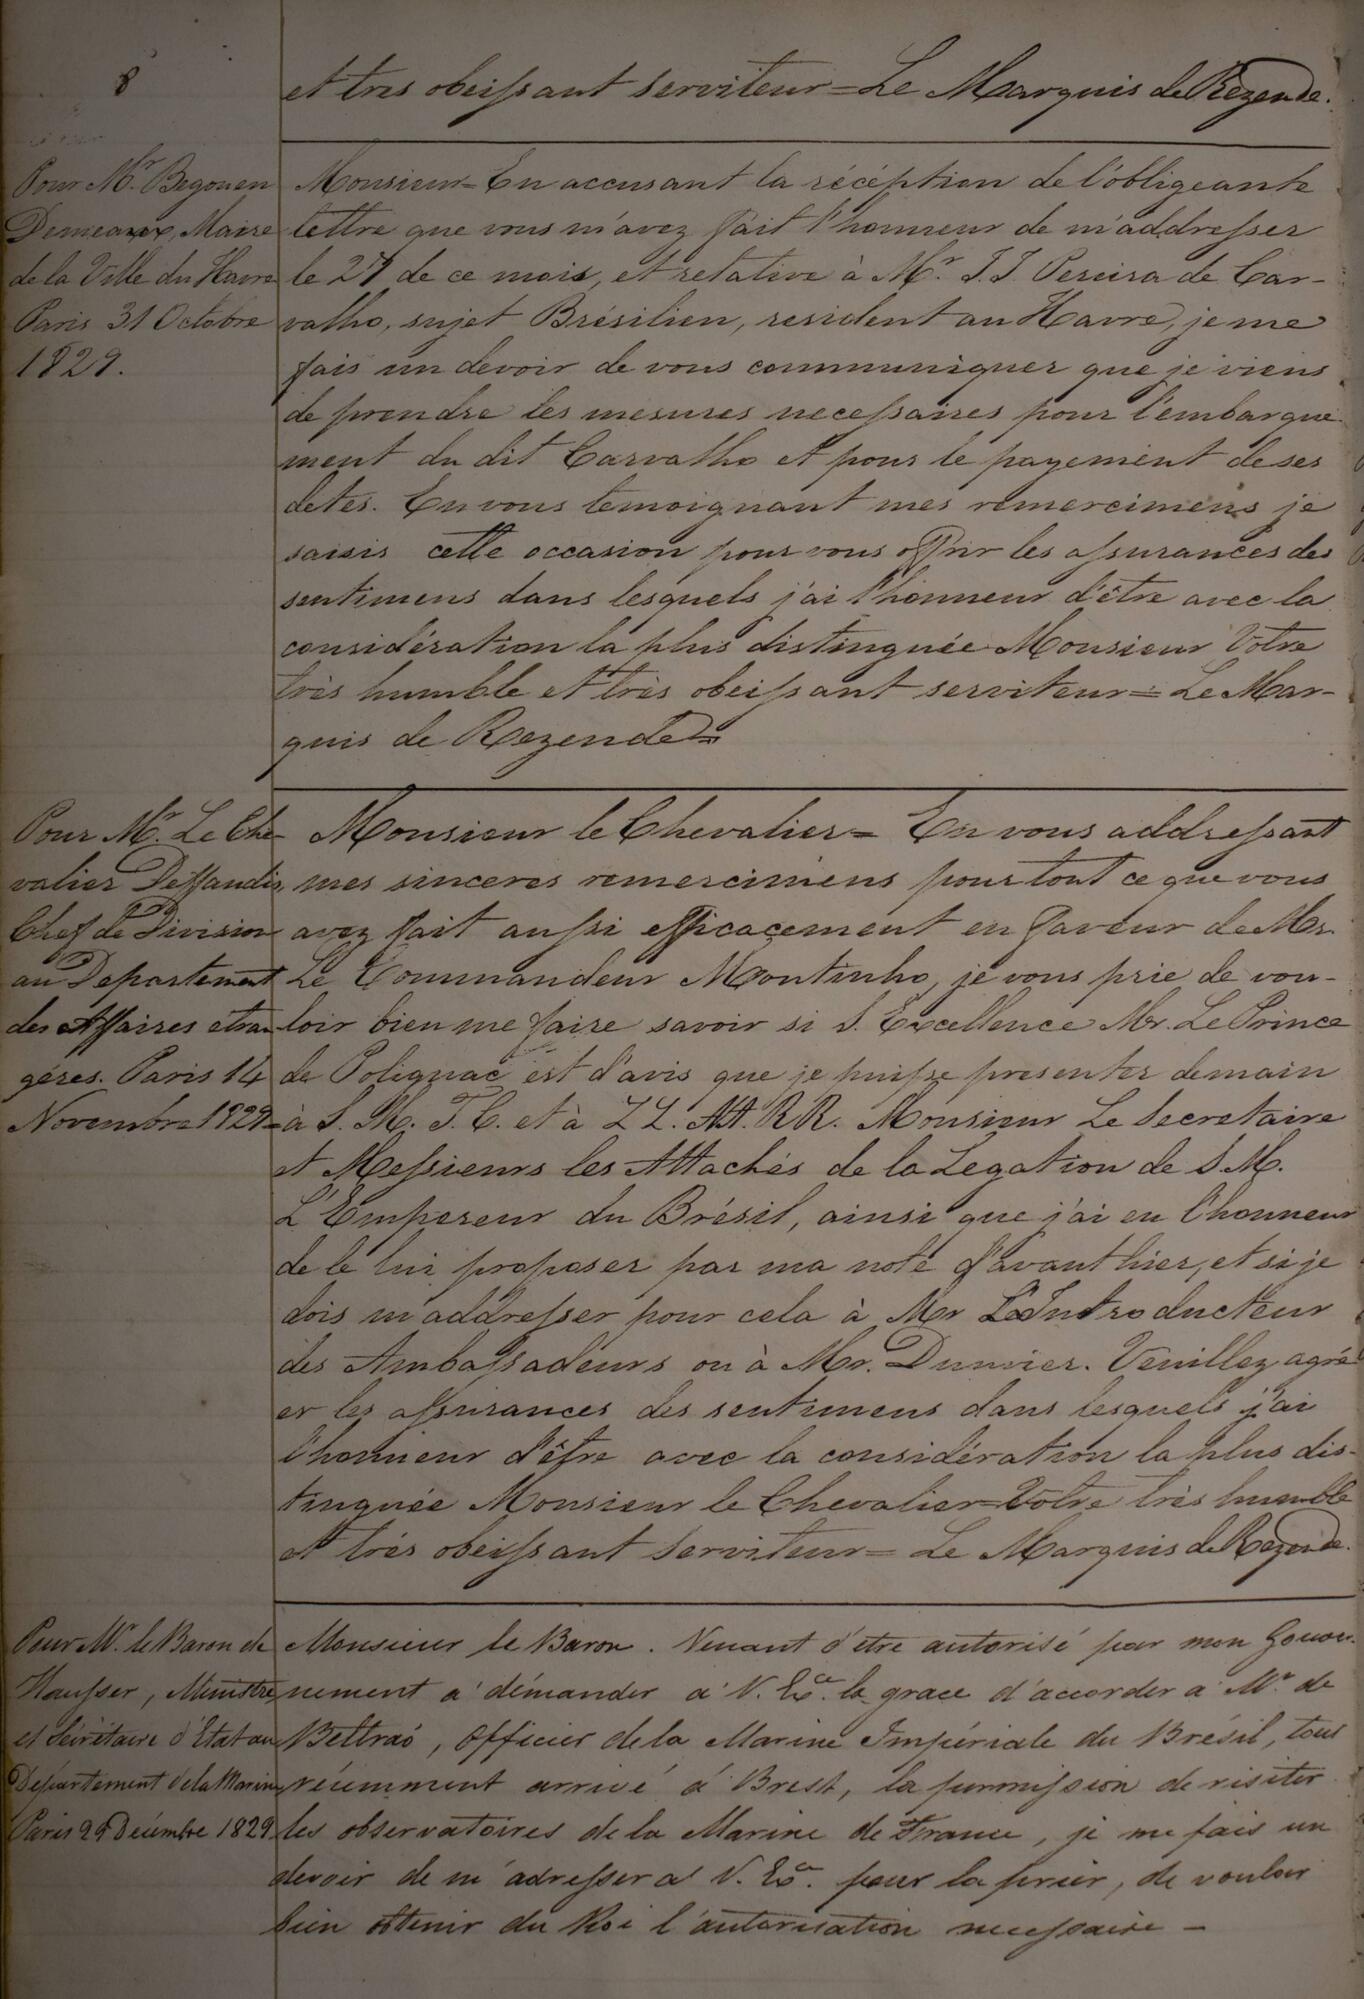 8
et tres obeissant serviteur = Le Marquis de Rezende.
Pour Mr. Begouen
Demeaux, Maire
de la Ville du Havre
Paris 31 Octobre
1829.
Monsieur = En accusant la récéption de l'obligeante
lettre que vous m'avez fait l'honneur de m'addresser
le 27 de ce mois, et relative à Mr. J. J. Pereira de Car-
valho, sujet Brésilien, resident au Havre, je me
fais un devoir de vous communiquer que je viens
de prendre les mesures necessaires pour l'embarque-
ment du dit Carvalho et pour le payement de ses
detes. En vous temoignant mes remercimens je
saisis cette occasion pour vous offrir les assurances des
sentimens dans lesquels j'ai l'honneur d'être avec la
considération la plus distinguée Monsieur Votre
très humble et très obeissant serviteur = Le Mar-
quis de Rezende =
Pour Mr. Le Che-
valier Deffaudis,
Chef de Division
au Departement
des Affaires etran
géres. Paris 14
Novembre 1829 =
Monsieur le Chevalier = En vous addressant
mes sinceres remercimens pour tout ce que vous
avez fait aussi efficacement en faveur de Mr.
Le Commandeur Moutinho, je vous prie de vou-
loir bien me faire savoir si S. Excellence Mr. Le Prince
de Polignac est d'avis que je puisse presenter demain
à S. M. T. C. et à LL. AA. RR. Monsieur Le Secretaire
et Messieurs les Attachés de la Legation de S. M.
L'Empereur du Brésil, ainsi que j'ai eu l'honneur
de le lui proposer par ma note d'avant hier, et si je
dois m'addresser pour cela à Mr L'Introducteur
des Ambassadeurs ou à Mr. Veuillez agré
er les assurances des sentimens dans lesquels j'ai
l'honneur d'être avec la considération la plus dis-
tinguée Monsieur le Chevalier = Votre très humble
et très obeissant serviteur = Le Marquis de Rezende.
Pour Mr. le Baron de
Hausser, Ministre
et Sécrétaire d'Etat au
Département de la Marine
Paris 29 Décembre 1829
Monsieur le Baron. Venant d'être autorisé par mon Gouver-
nement a démander a V. Exce. la grace d'accorder a Mr. de
Beltraõ, officier de la Marine Impériale du Brésil, tout
récemment arrivé à Brest, la permission de visiter
les observatoires de la Marine de France, je me fais un
devoir de m'adresser a V. Exce. pour la prier, de vouloir
bien obtenir du Roi l'autorisation necessaire —